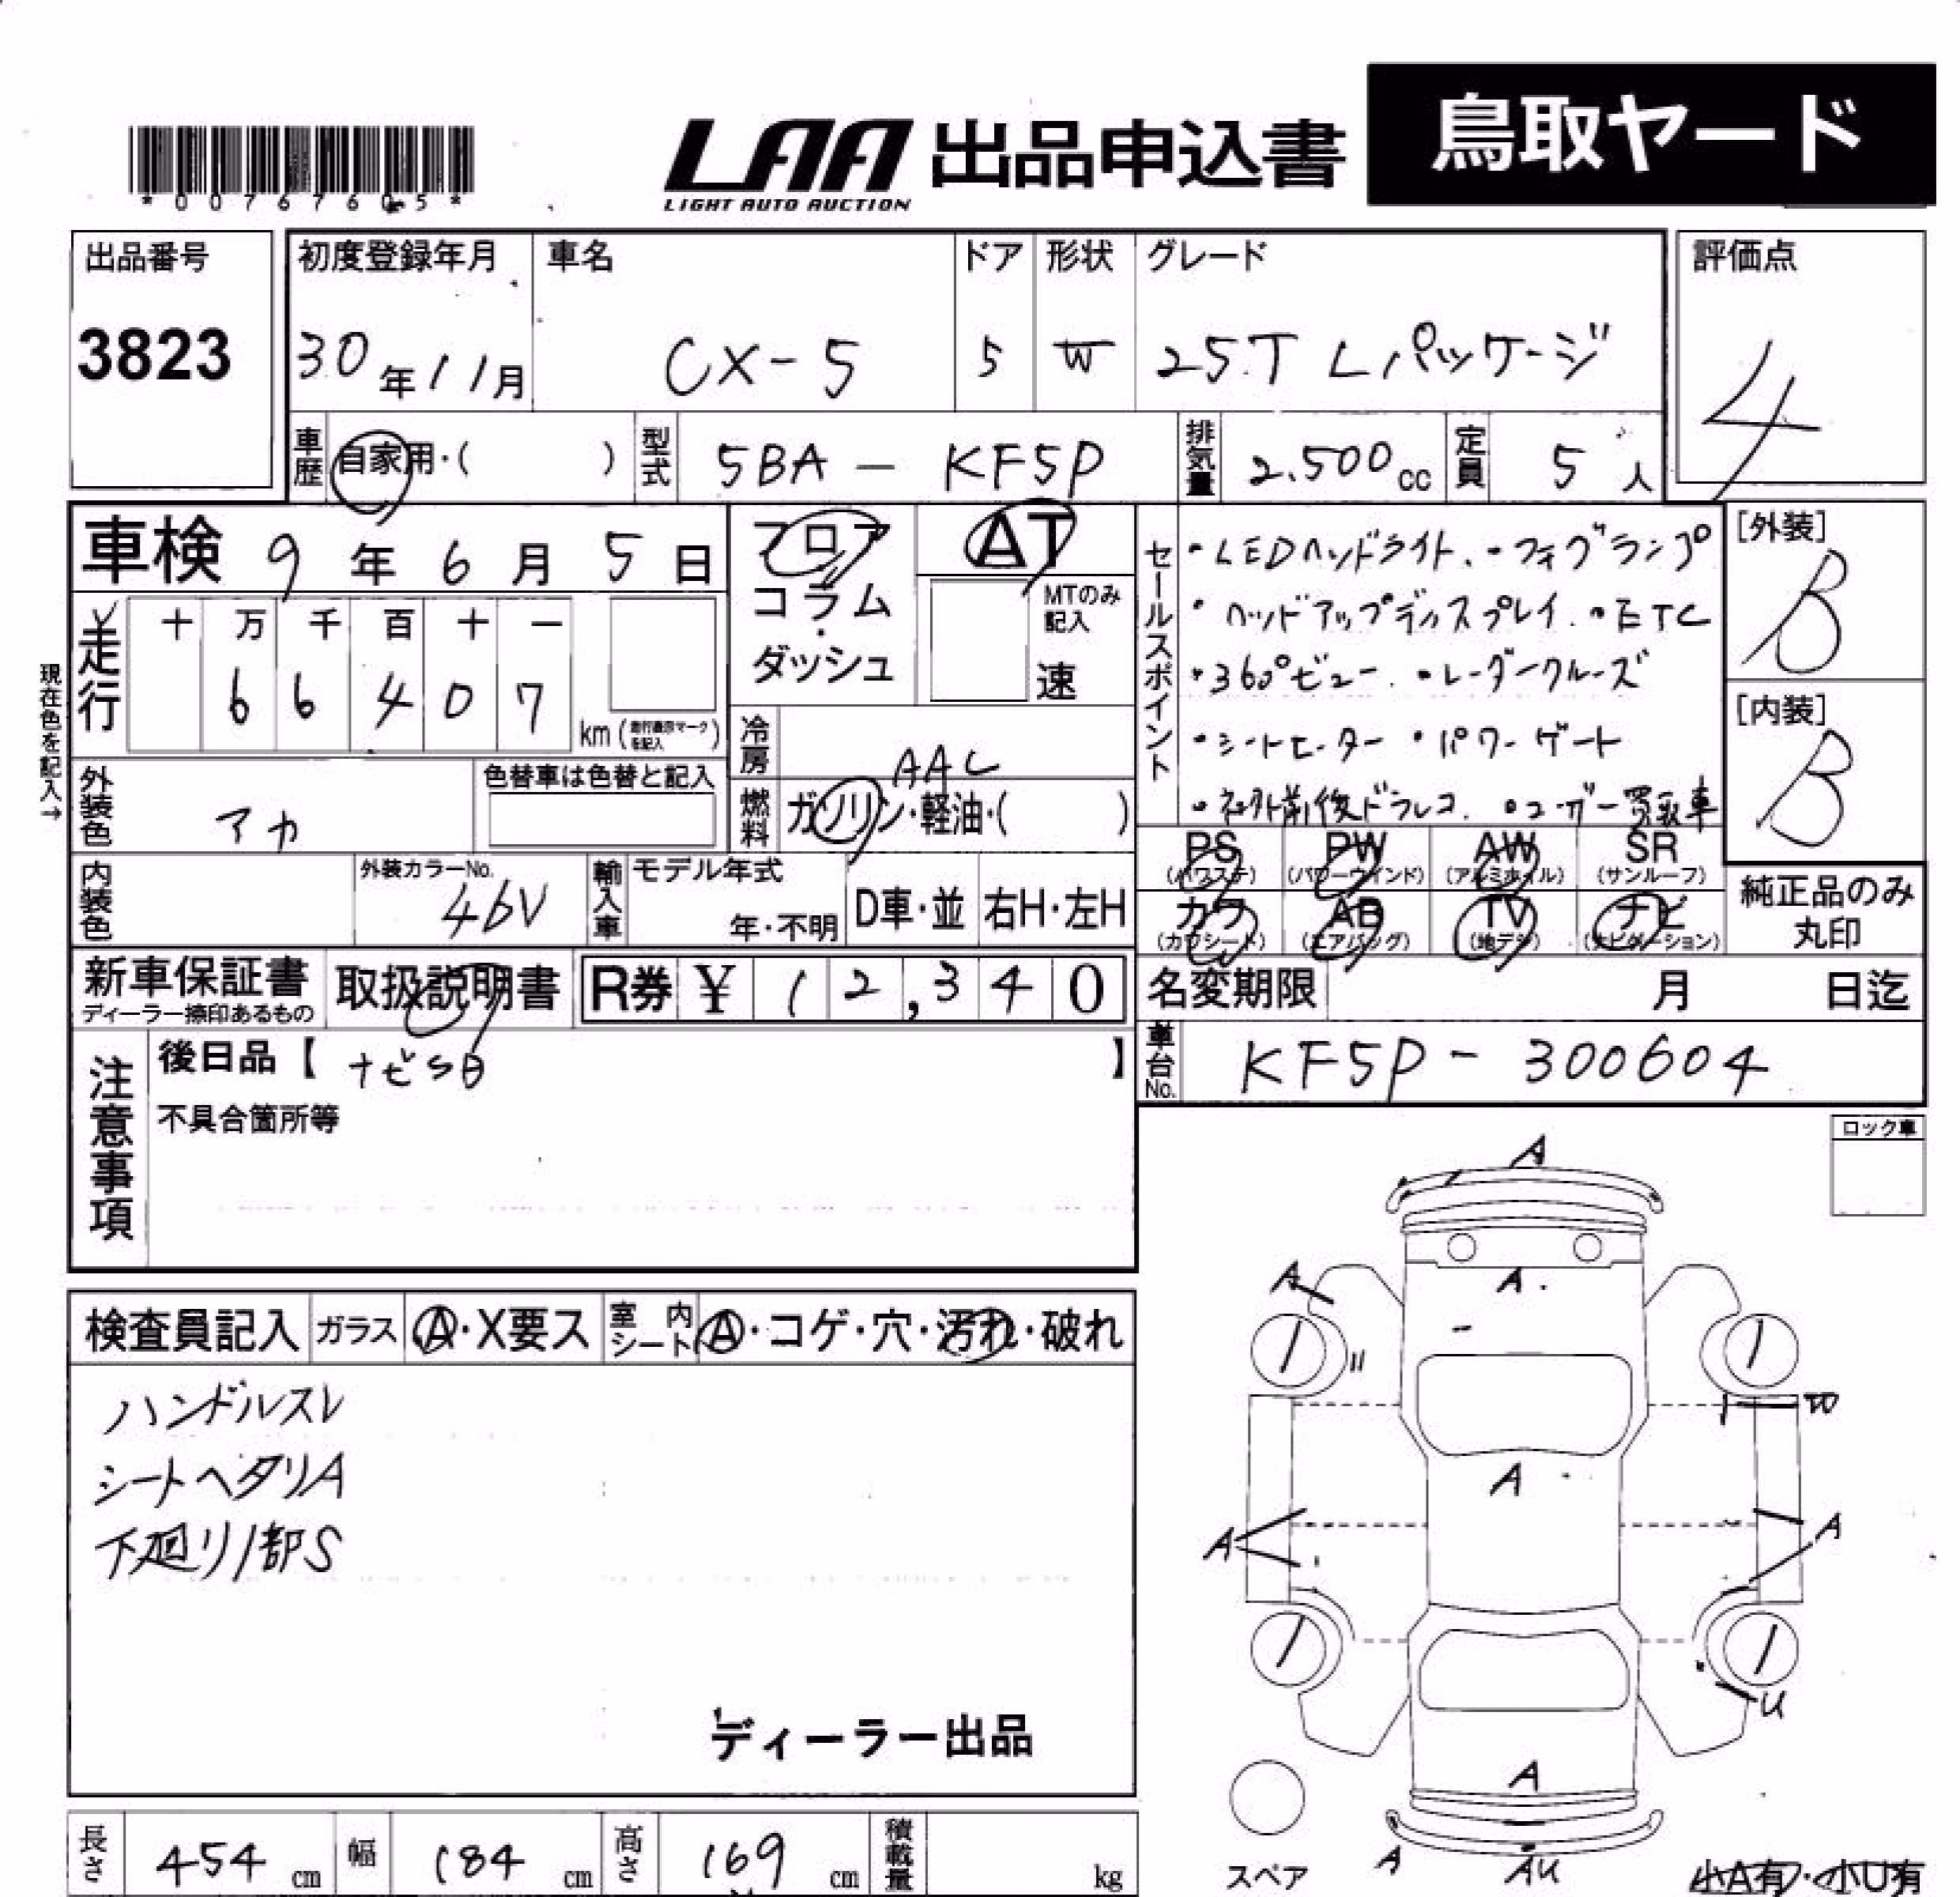 鳥取ヤード
LAA 出品申込書
LIGHT AUTO AUCTION
*00767605*
出品番号 初度登録年月 車名 ドア 形状 グレード 評価点
3823 30年11月 CX-5 5 W 25.T Lパッケージ 4
車歴 自家用・( ) 型式 5BA - KF5P 排気量 2.500cc 定員 5人
車検 9年6月5日
フロア
コラム・
ダッシュ
AT
MTのみ記入
速
走行 十 万 千 百 十 一
66407 km (走行重示マークを記入)
現在色を記入→
冷房 AAC
燃料 ガソリン・軽油・( )
外装色 アカ 色替車は色替と記入
内装色 外装カラーNo. 46V 輸入車 モデル年式 年・不明 D車・並 右H・左H
セールスポイント
・LEDヘッドライト.・フォグランプ
・ヘッドアップディスプレイ.・ETC
・360°ビュー.・レーダークルーズ
・シートヒーター・パワーゲート
・社外前後ドラレコ.・ユーザー買取車
[外装] B
[内装] B
PS (パワステ) PW (パワーウインド) AW (アルミホイル) SR (サンルーフ)
カワ (カワシート) AB (エアバッグ) TV (地デジ) ナビ (ナビゲーション)
純正品のみ丸印
新車保証書 ディーラー捺印あるもの 取扱説明書 R券 ¥12,340
名変期限 月 日迄
車台No. KF5P-300604
注意事項
後日品【ナビSD】
不具合箇所等
ロック車
検査員記入 ガラス A・X要ス 室内シート A・コゲ・穴・汚れ・破れ
ハンドルスレ
シートヘタリA
下廻り1部S
ディーラー出品
A
A
A
W
A
A
A
U
A
A
AU
スペア
小A有・小U有
長さ 454cm 幅 184cm 高さ 169cm 積載量 kg